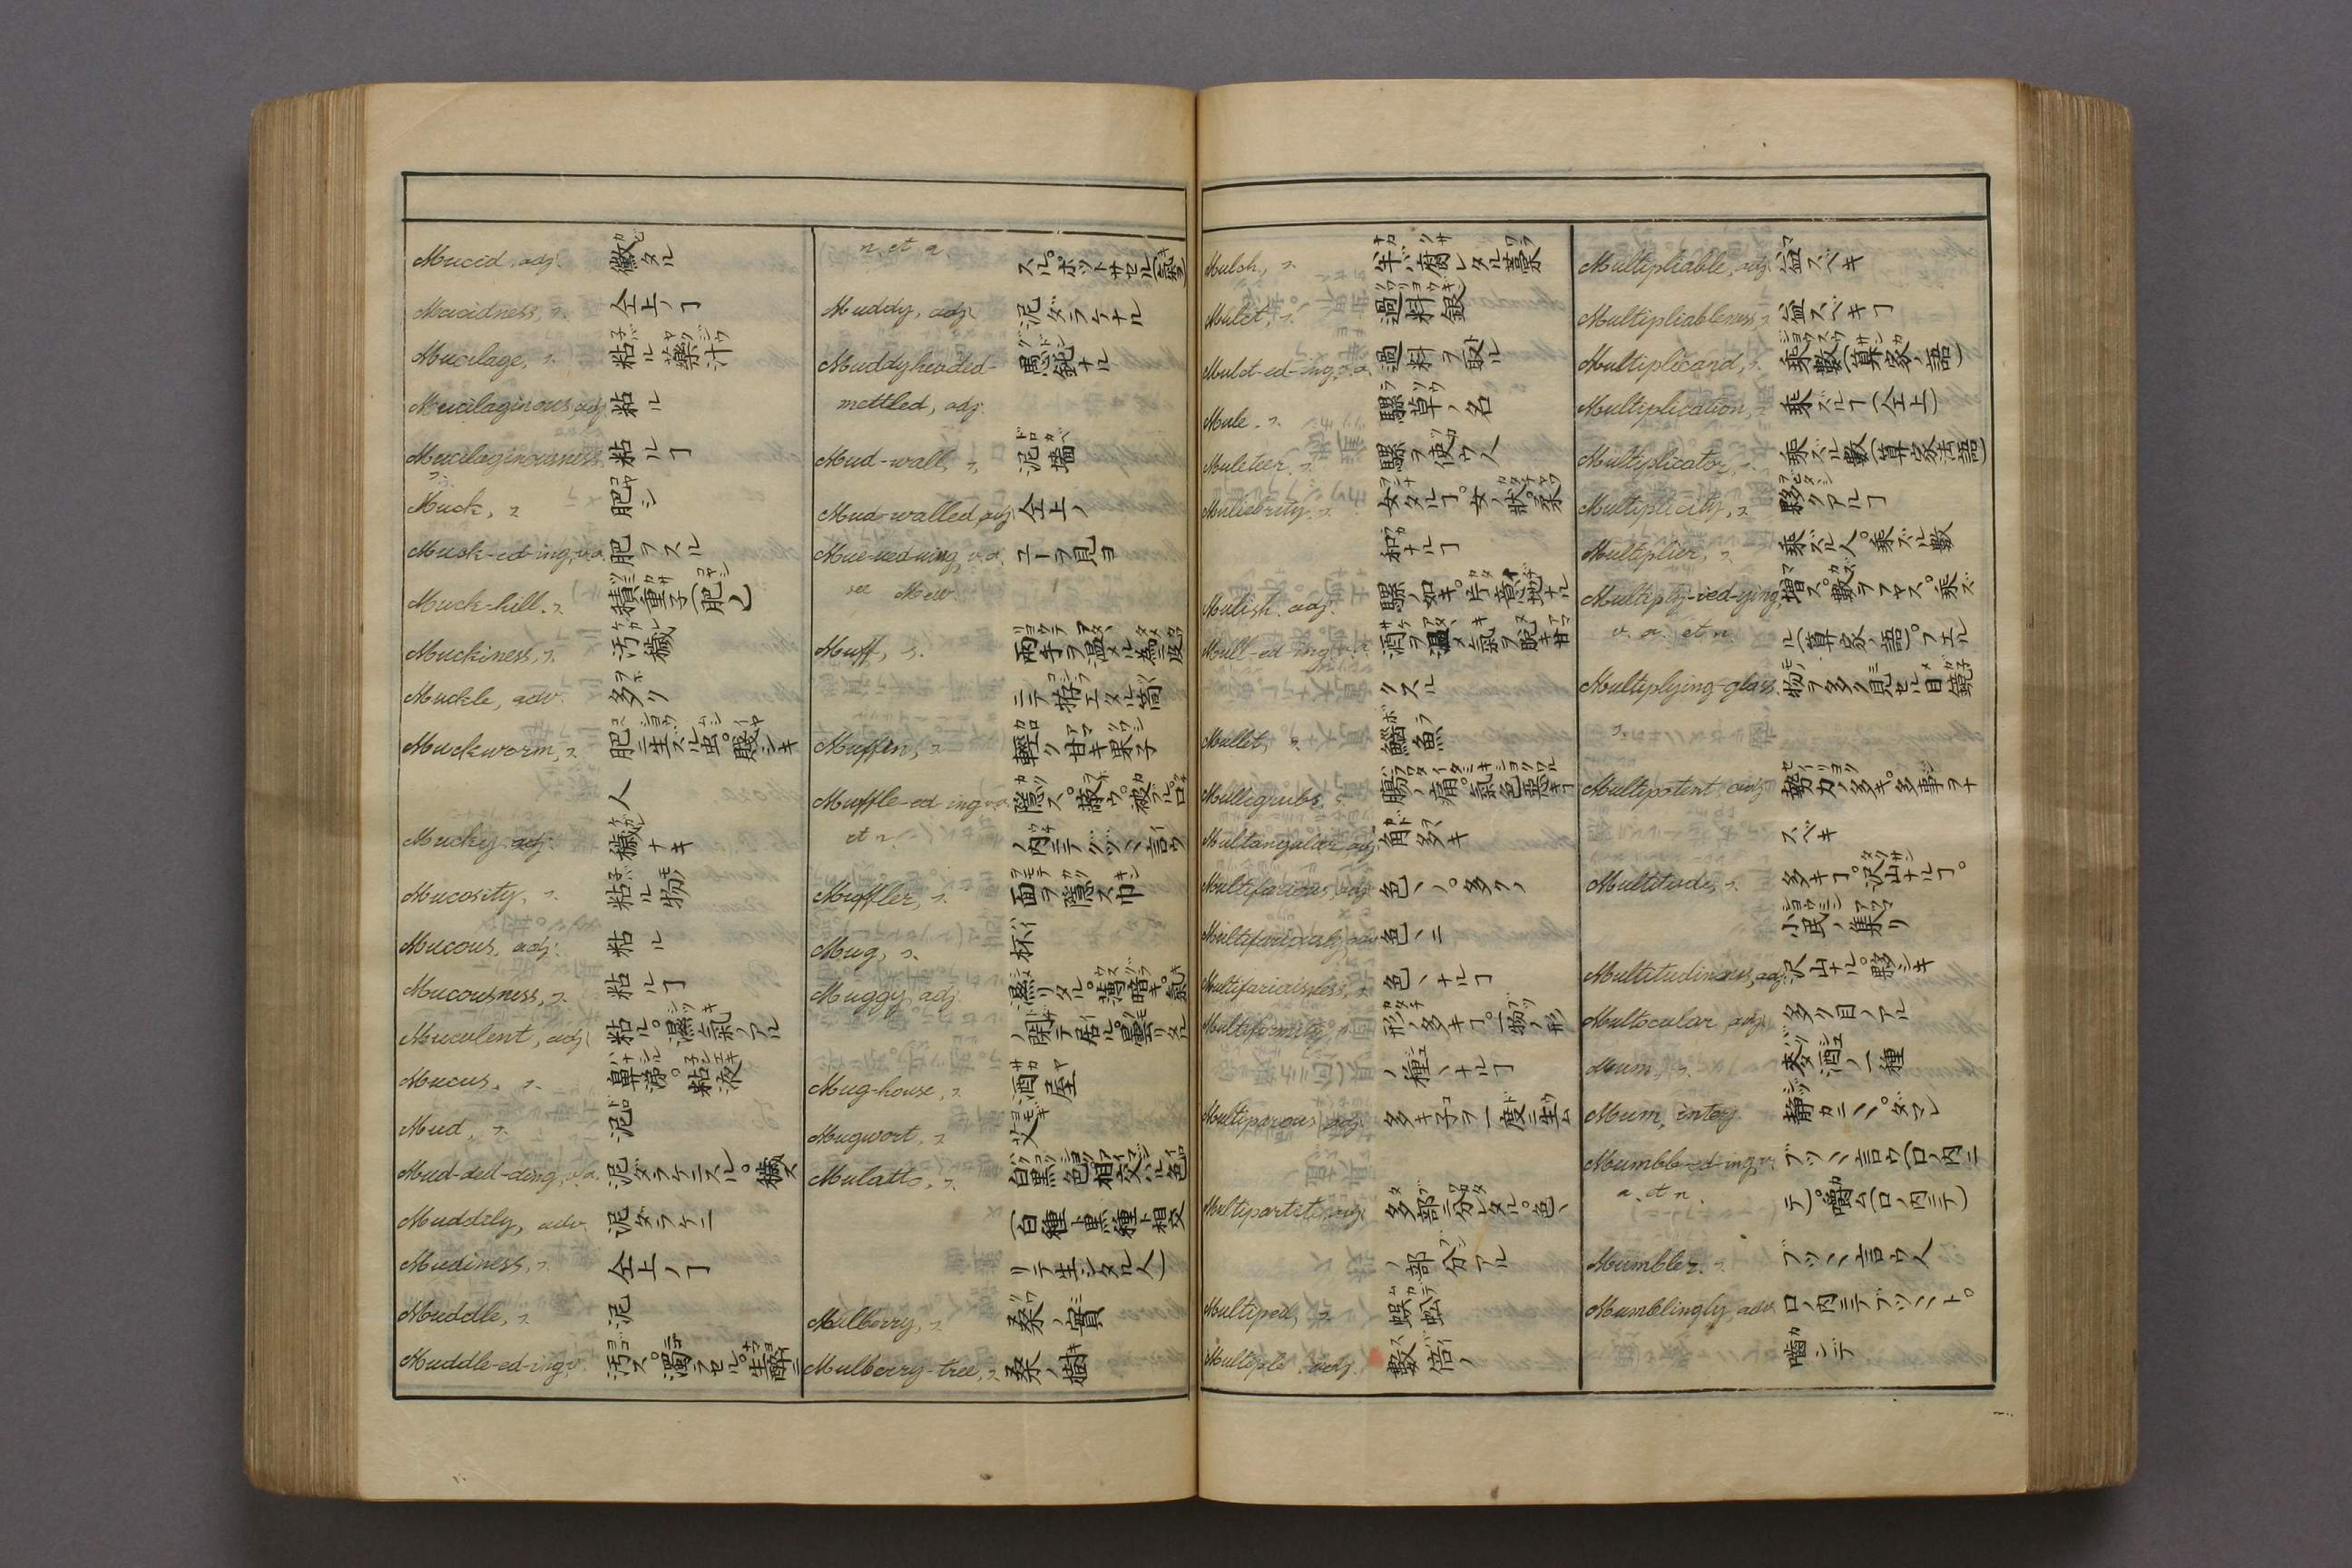 Mucid, adj. 黴タル
Mucidness, s. 仝上ノヿ
Mucilage, s. 粘ル藥汁
Mucilaginous, adj. 粘ル
Mucilaginousness, s. 粘ルヿ
Muck, s. 肥シ
Muck-ed-ing, v.a. 肥ヲスル
Muck-hill, s. 積重子(肥シ)
Muckiness, s. 汚穢
Muckle, adv. 多ク
Muckworm, s. 肥ニ生ズル虫。賤シキ
人
Mucky, adj. 穢ナキ
Mucosity, s. 粘ル物
Mucous, adj. 粘ル
Mucousness, s. 粘ルヿ
Muculent, adj. 粘ル。濕氣ノアル
Mucus, s. 鼻涕。粘液
Mud, s. 泥
Mud-ded-ding, v.a. 泥ダラケニスル。穢ス
Muddily, adv. 泥ダラケニ
Mudiness, s. 仝上ノヿ
Muddle, s. 泥
Muddle-ed-ing, v. 汚ス。濁ラセル。生醉ニ
n. et a. スル。ボットサセル(氣ヲ)
Muddy, adj. 泥ダラケナル
Muddyheaded- 愚鈍ナル
mettled, adj.
Mud-wall, s. 泥墻
Mud-walled, adj. 仝上ノ
Mue-ued-uing, v.a. ユーヲ見ヨ
see Mew
Muff, s. 兩手ヲ温メル為ニ皮
ニテ拵エタル筒
Muffin, s. 輕ク甘キ果子
Muffle-ed-ing, v.a. 隱ス。蔽ウ。被ブル。口
et n. ノ内ニテグヅヽヽ言ウ
Muffler, s. 面ヲ隱ス巾
Mug, s. 杯
Muggy, adj. 濕リタル。薄暗キ。氣
ノ閉テ居ル。曇リタル
Mug-house, s. 酒屋
Mugwort, s. 艾
Mulatto, s. 白黒色相交ハル色
(白種ト黒種ト相交
リテ生ジタル人)
Mulberry, s. 桑ノ實
Mulberry-tree, s. 桑ノ樹
Mulch, s. 半バ腐レタル藁
Mulct, s. 過料銀
Mulct-ed-ing, v.a. 過料ヲ取ル
Mule, s. 騾草ノ名
Muleteer, s. 騾ヲ使ウ人
Muliebrity, s. 女タルヿ。女ノ狀。柔
和ナルヿ
Mulish, adj. 騾ノ如キ。片意地ナル
Mull-ed-ing, v.a. 酒ヲ温メ氣ヲ脱キ甘
クスル
Mullet, s. 鯔魚
Mulligrubs, s. 腸ノ痛。氣色悪キヿ
Multangular, adj. 角多キ
Multifarious, adj. 色ヽノ。多クノ
Multifariously, adv. 色ヽニ
Multifariousness, s. 色ヽナルヿ
Multiformity, s. 形ノ多キヿ。一物ノ形
ノ種ヽナルヿ
Multiparous, adj. 多キ子ヲ一度ニ生ム
Multipartite, adj. 多部ニ分レタル。色ヽ
ノ部分アル
Multiped, s. 蜈蚣
Multiple, adj. 數倍ノ
Multipliable, adj. 益スベキ
Multipliableness, s. 益スベキヿ
Multiplicand, s. 乘數(算家ノ語)
Multiplication, s. 乘ズルヿ(仝上)
Multiplicator, s. 乘ズル數(算家ノ語)
Multiplicity, s. 夥クアルヿ
Multiplier, s. 乘ズル人。乘ズル數
Multiply-ied-ying, 増ス。數ヲマス。乘ズ
v. a. et n. ル(算家ノ語)。フエル
Multiplying-glass, 物ヲ多ク見セル目鏡
s.
Multipotent, adj. 勢力ノ多キ。多事ヲナ
スベキ
Multitude, s. 多キヿ。沢山ナルヿ。
小民ノ集リ
Multitudinous, adj. 沢山ナル。夥シキ
Multocular, adj. 多ク目ノアル
Mum, s. 麥酒ノ一種
Mum, interj. 静カニヽヽ。ダマレ
Mumble-ed-ing, v. ブツヽヽ言ウ(口ノ内ニ
a. et n. テ)。嚙ム(口ノ内ニテ)
Mumbler, s. ブツヽヽ言ウ人
Mumblingly, adv. 口ノ内ニテブツヽヽト。
嚙シテ